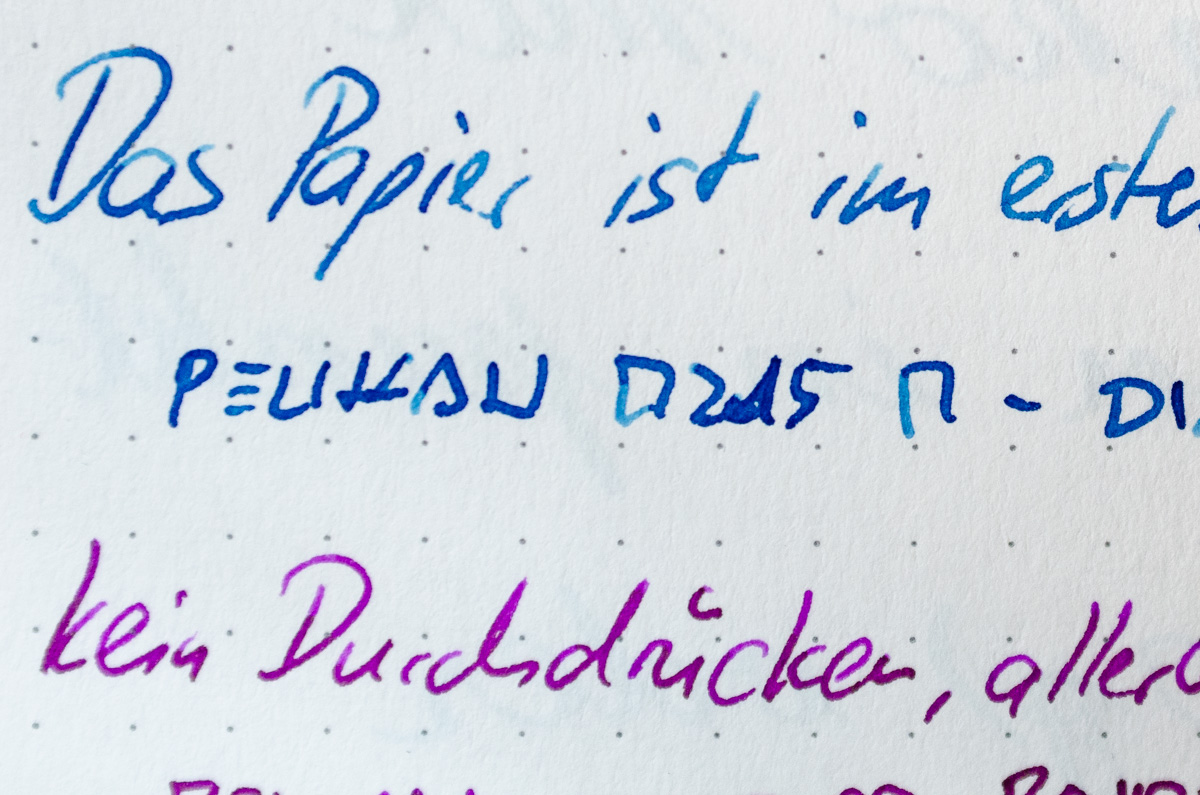 Das Papier ist im ersten
PELIKAN M215 M - DI
kein Durchdrücken, aller